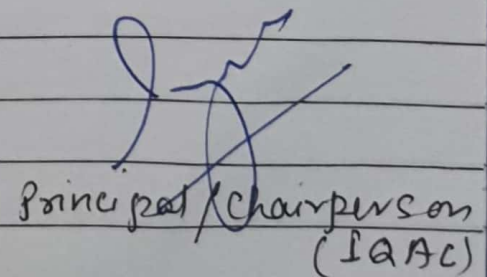 Principal/Chairperson
(IQAC)